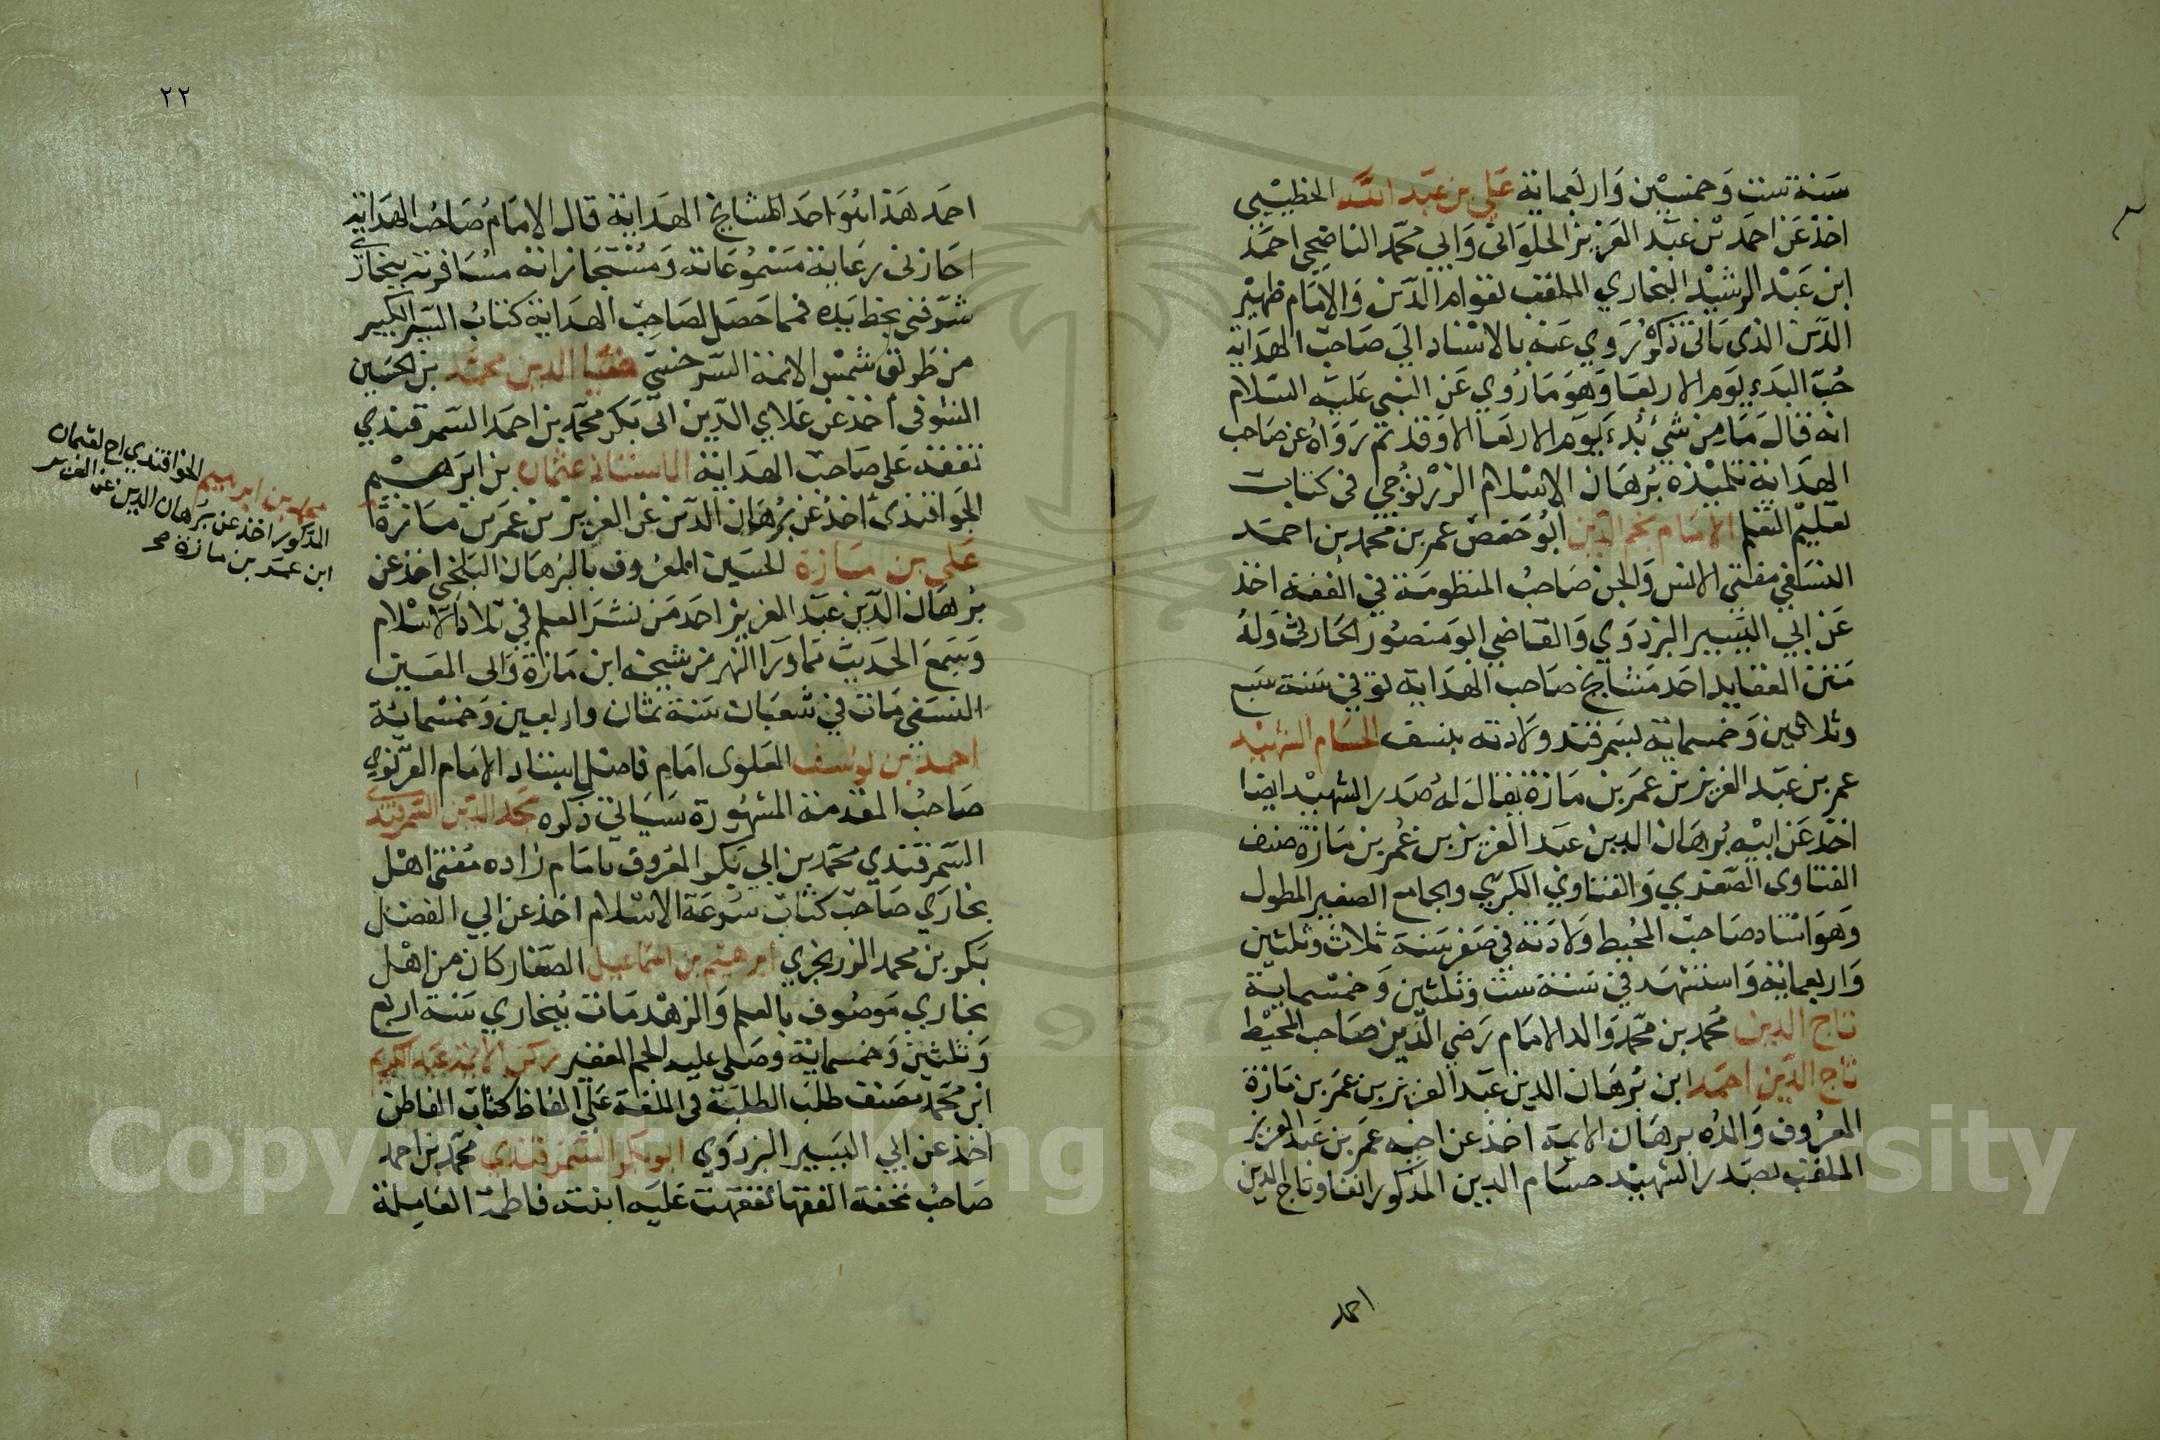 سنة ست وخمسين واربعماية علي بن عبد الله الخطيبي
اخذ عن احمد بن عبد العزيز الحلواني وابي محمد الناضحي احمد
ابن عبد الرشيد البخاري الملقب بقوام الدين والامام ظهير
الدين الذي ياتي ذكره يروي عنه بالاسناد الي صاحب الهداية
حب البدء يوم الاربعا وهو ما روي عن النبي عليه السلام
انه قال ما من شئ بدء يوم الاربعا الا وقد تم رواه عن صاحب
الهداية تلميذه برهان الاسلام الزرنوجي في كتاب
تعليم التعلم الامام نجم الدين ابو حفص عمر بن محمد بن احمد
النسفي مفتي الانس والجن صاحب المنظومة في الفقه اخذ
عن ابي اليسير البزدوي والقاضي ابو منصور الحارثي وله
متن العقايد احد مشايخ صاحب الهداية توفي سنة سبع
وثلاثين وخمسماية بسمرقند ولادته بنسف الحسام الشهيد
عمر بن عبد العزيز بن عمر بن مازة يقال له صدر الشهيد ايضا
اخذ عن ابيه برهان الدين عبد العزيز بن عمر بن مازة صنف
الفتاوى الصغري والفتاوي الكبري والجامع الصغير المطول
وهو استاد صاحب المحيط ولادته في صفر سنة ثلاث وثلثين
واربعماية واستشهد في سنة ست وثلثين وخمسماية
تاج الدين محمد بن محمد والد الامام رضي الدين صاحب المحيط
تاج الدين احمد ابن برهان الدين عبد العزيز بن عمر بن مازة
المعروف والده برهان الايمة اخذ عن اخيه عمر بن عبد العزيز
الملقب بصدر الشهيد حسام الدين المذكور انفا وتاج الدين
احمد
٢٢
احمد هذا هو احد المشايخ الهداية قال الامام صاحب الهداية
اجازني رعاية مسموعاته ومستجازاته مسافرته ببخاري
شرفني بخط يده فمما حصل لصاحب الهداية كتاب السير الكبير
من طريق شمس الائمة السرخسي ضيا الدين محمد بن الحسين
اخذ عن علاي الدين ابي بكر محمد بن احمد السمرقندي
تفقه على صاحب الهداية الاستاذ عثمان بن ابرهيم
الخواقندي اخذ عن برهان الدين عن العزيز بن عمر بن مازة
علي بن مازة الحسين المعروف بالبرهان البلخي اخذ عن
برهان الدين عبد العزيز احد من نشر العلم في بلاد الاسلام
وسمع الحديث بماورا النهر من شيخه ابن مازة وابى المعين
النسفي مات في شعبان سنة ثمان واربعين وخمسمائة
احمد بن يوسف العلوى امام فاضل استاد الامام الغزنوي
صاحب المقدمة المشهورة سياتي ذكره مجد الدين السمرقندي
السمرقندي محمد بن ابي بكر المعروف بامام زاده مفتي اهل
بخاري صاحب كتاب شرعة الاسلام اخذ عن ابي الفضل
بكر بن محمد الزرنجري ابرهيم بن اسماعيل الصفار كان من اهل
بخاري موصوف بالعلم والزهد مات ببخاري سنة اربع
وثلثين وخمسماية وصلى عليه الجم الغفير ركن الائمة عبد الكريم
ابن محمد مصنف طلبة الطلبة في اللغة على الفاظ كتاب
اخذ عن ابي اليسير البزدوي ابو بكر السمرقندي محمد بن احمد
صاحب تحفة الفقها تفقهت عليه ابنته فاطمة الفاضلة
محمد بن ابرهيم الخواقندي اخ لقمان
المذكور اخذ عن برهان الدين عن العزيز
ابن عمر بن مازة صح
Copyright © King Saud University
1957